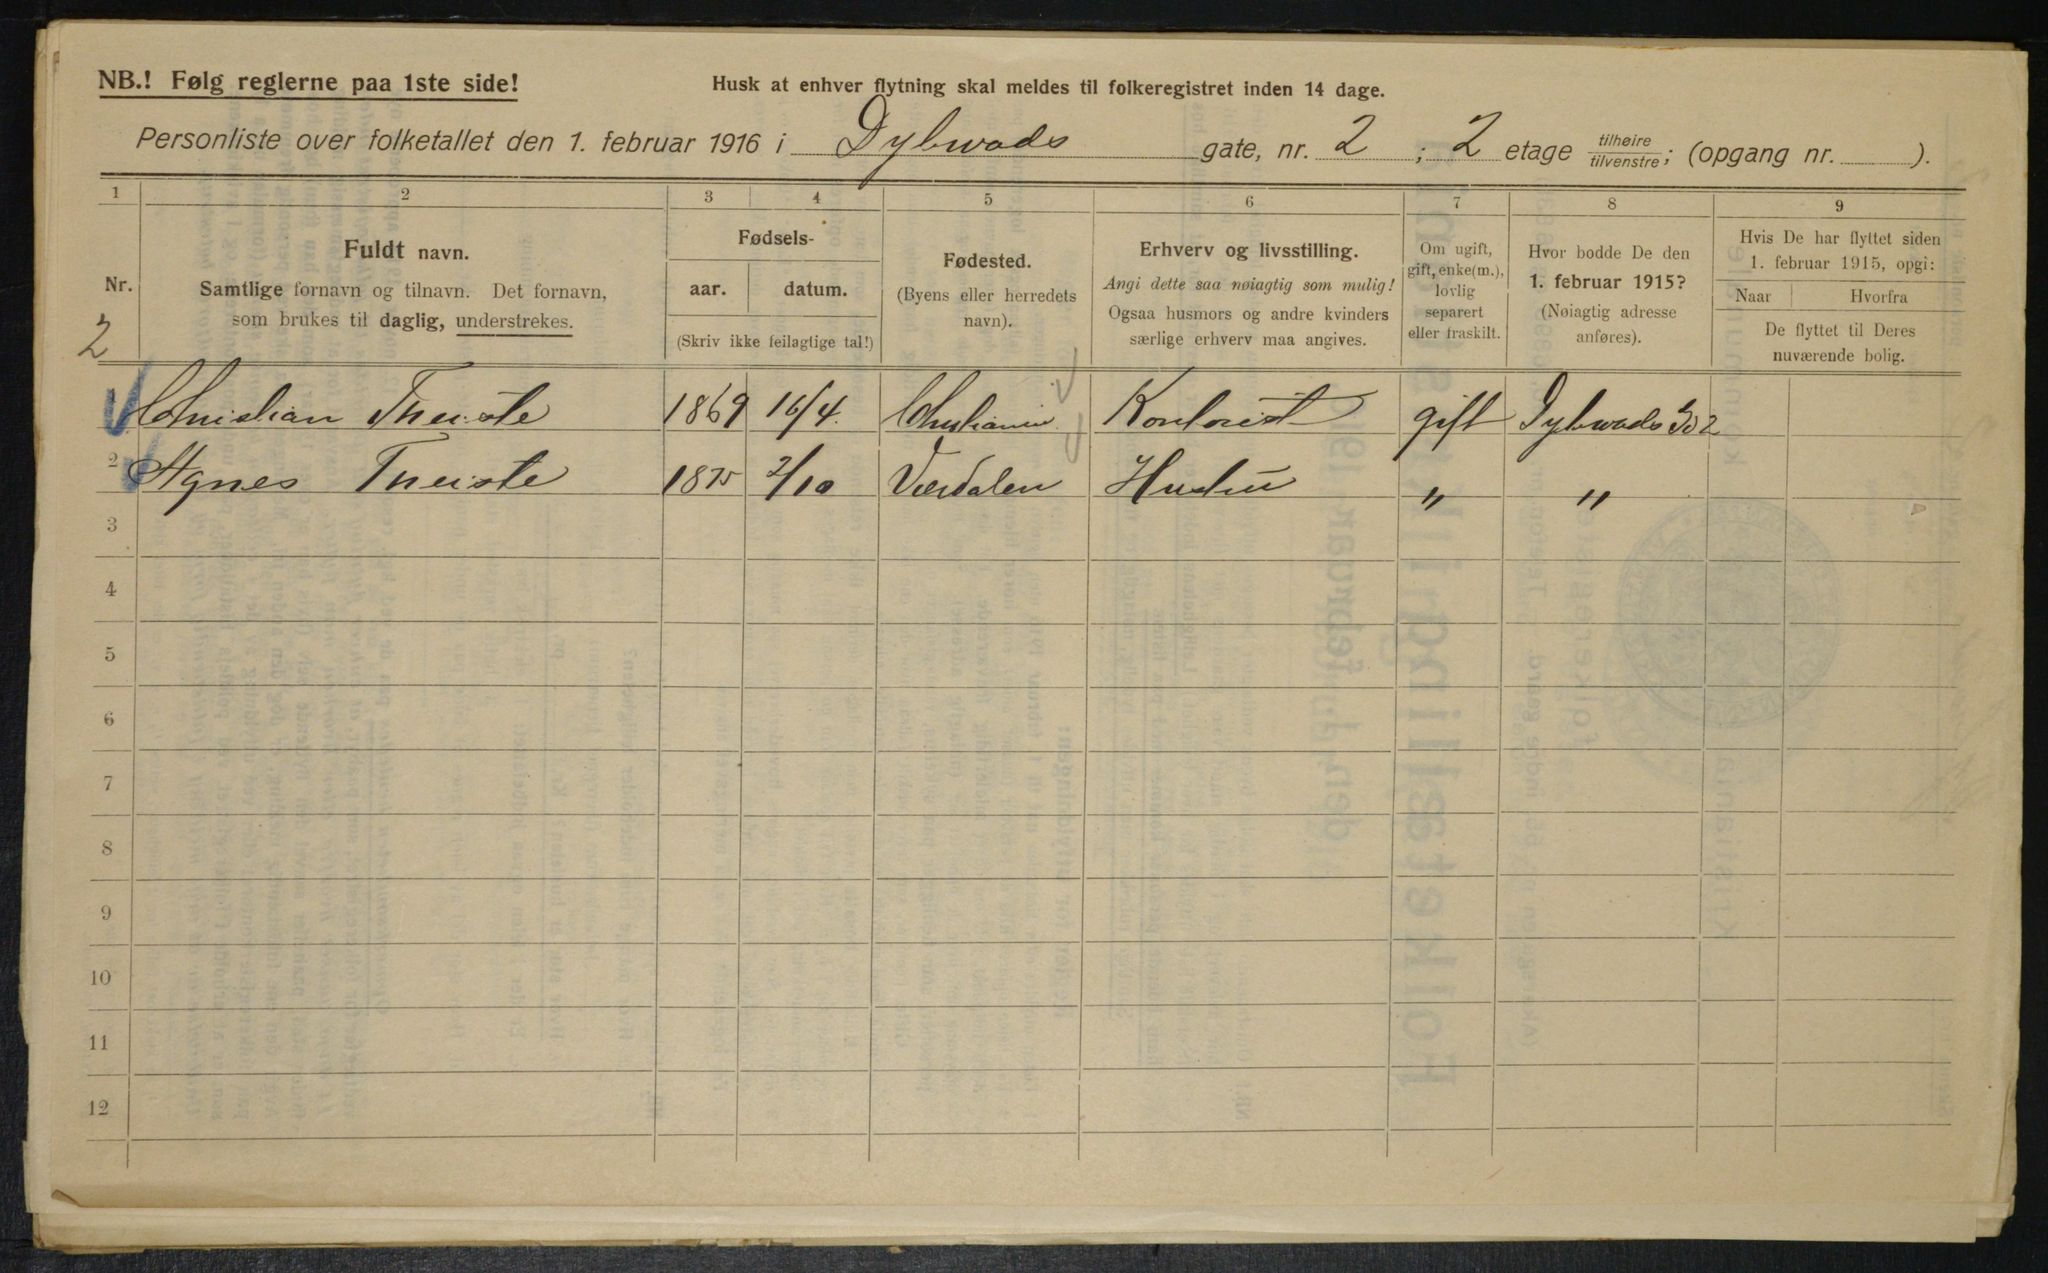 NB.! Følg reglerne paa 1ste side!
Husk at enhver flytning skal meldes til folkeregistret inden 14 dage.
Personliste over folketallet den 1. februar 1916 i Dybwads gate, nr. 2 ; 2 etage tilhøire/tilvenstre; (opgang nr. ).
1 2 3 4 5 6 7 8 9
Nr.
2
Fuldt navn.
Samtlige fornavn og tilnavn. Det fornavn,
som brukes til daglig, understrekes.
Fødsels-
aar. datum.
(Skriv ikke feilagtige tal!)
Fødested.
(Byens eller herredets
navn).
Erhverv og livsstilling.
Angi dette saa nøiagtig som mulig!
Ogsaa husmors og andre kvinders
særlige erhverv maa angives.
Om ugift,
gift, enke(m.),
lovlig
separert
eller fraskilt.
Hvor bodde De den
1. februar 1915?
(Nøiagtig adresse
anføres).
Hvis De har flyttet siden
1. februar 1915, opgi:
Naar Hvorfra
De flyttet til Deres
nuværende bolig.
Christian Theiste 1869 16/4. Christiania Kontorist gift Dybwads Gd 2
2 Agnes Theiste 1875 2/10 Værdalen Hustru " "
3
4
5
6
7
8
9
10
11
12